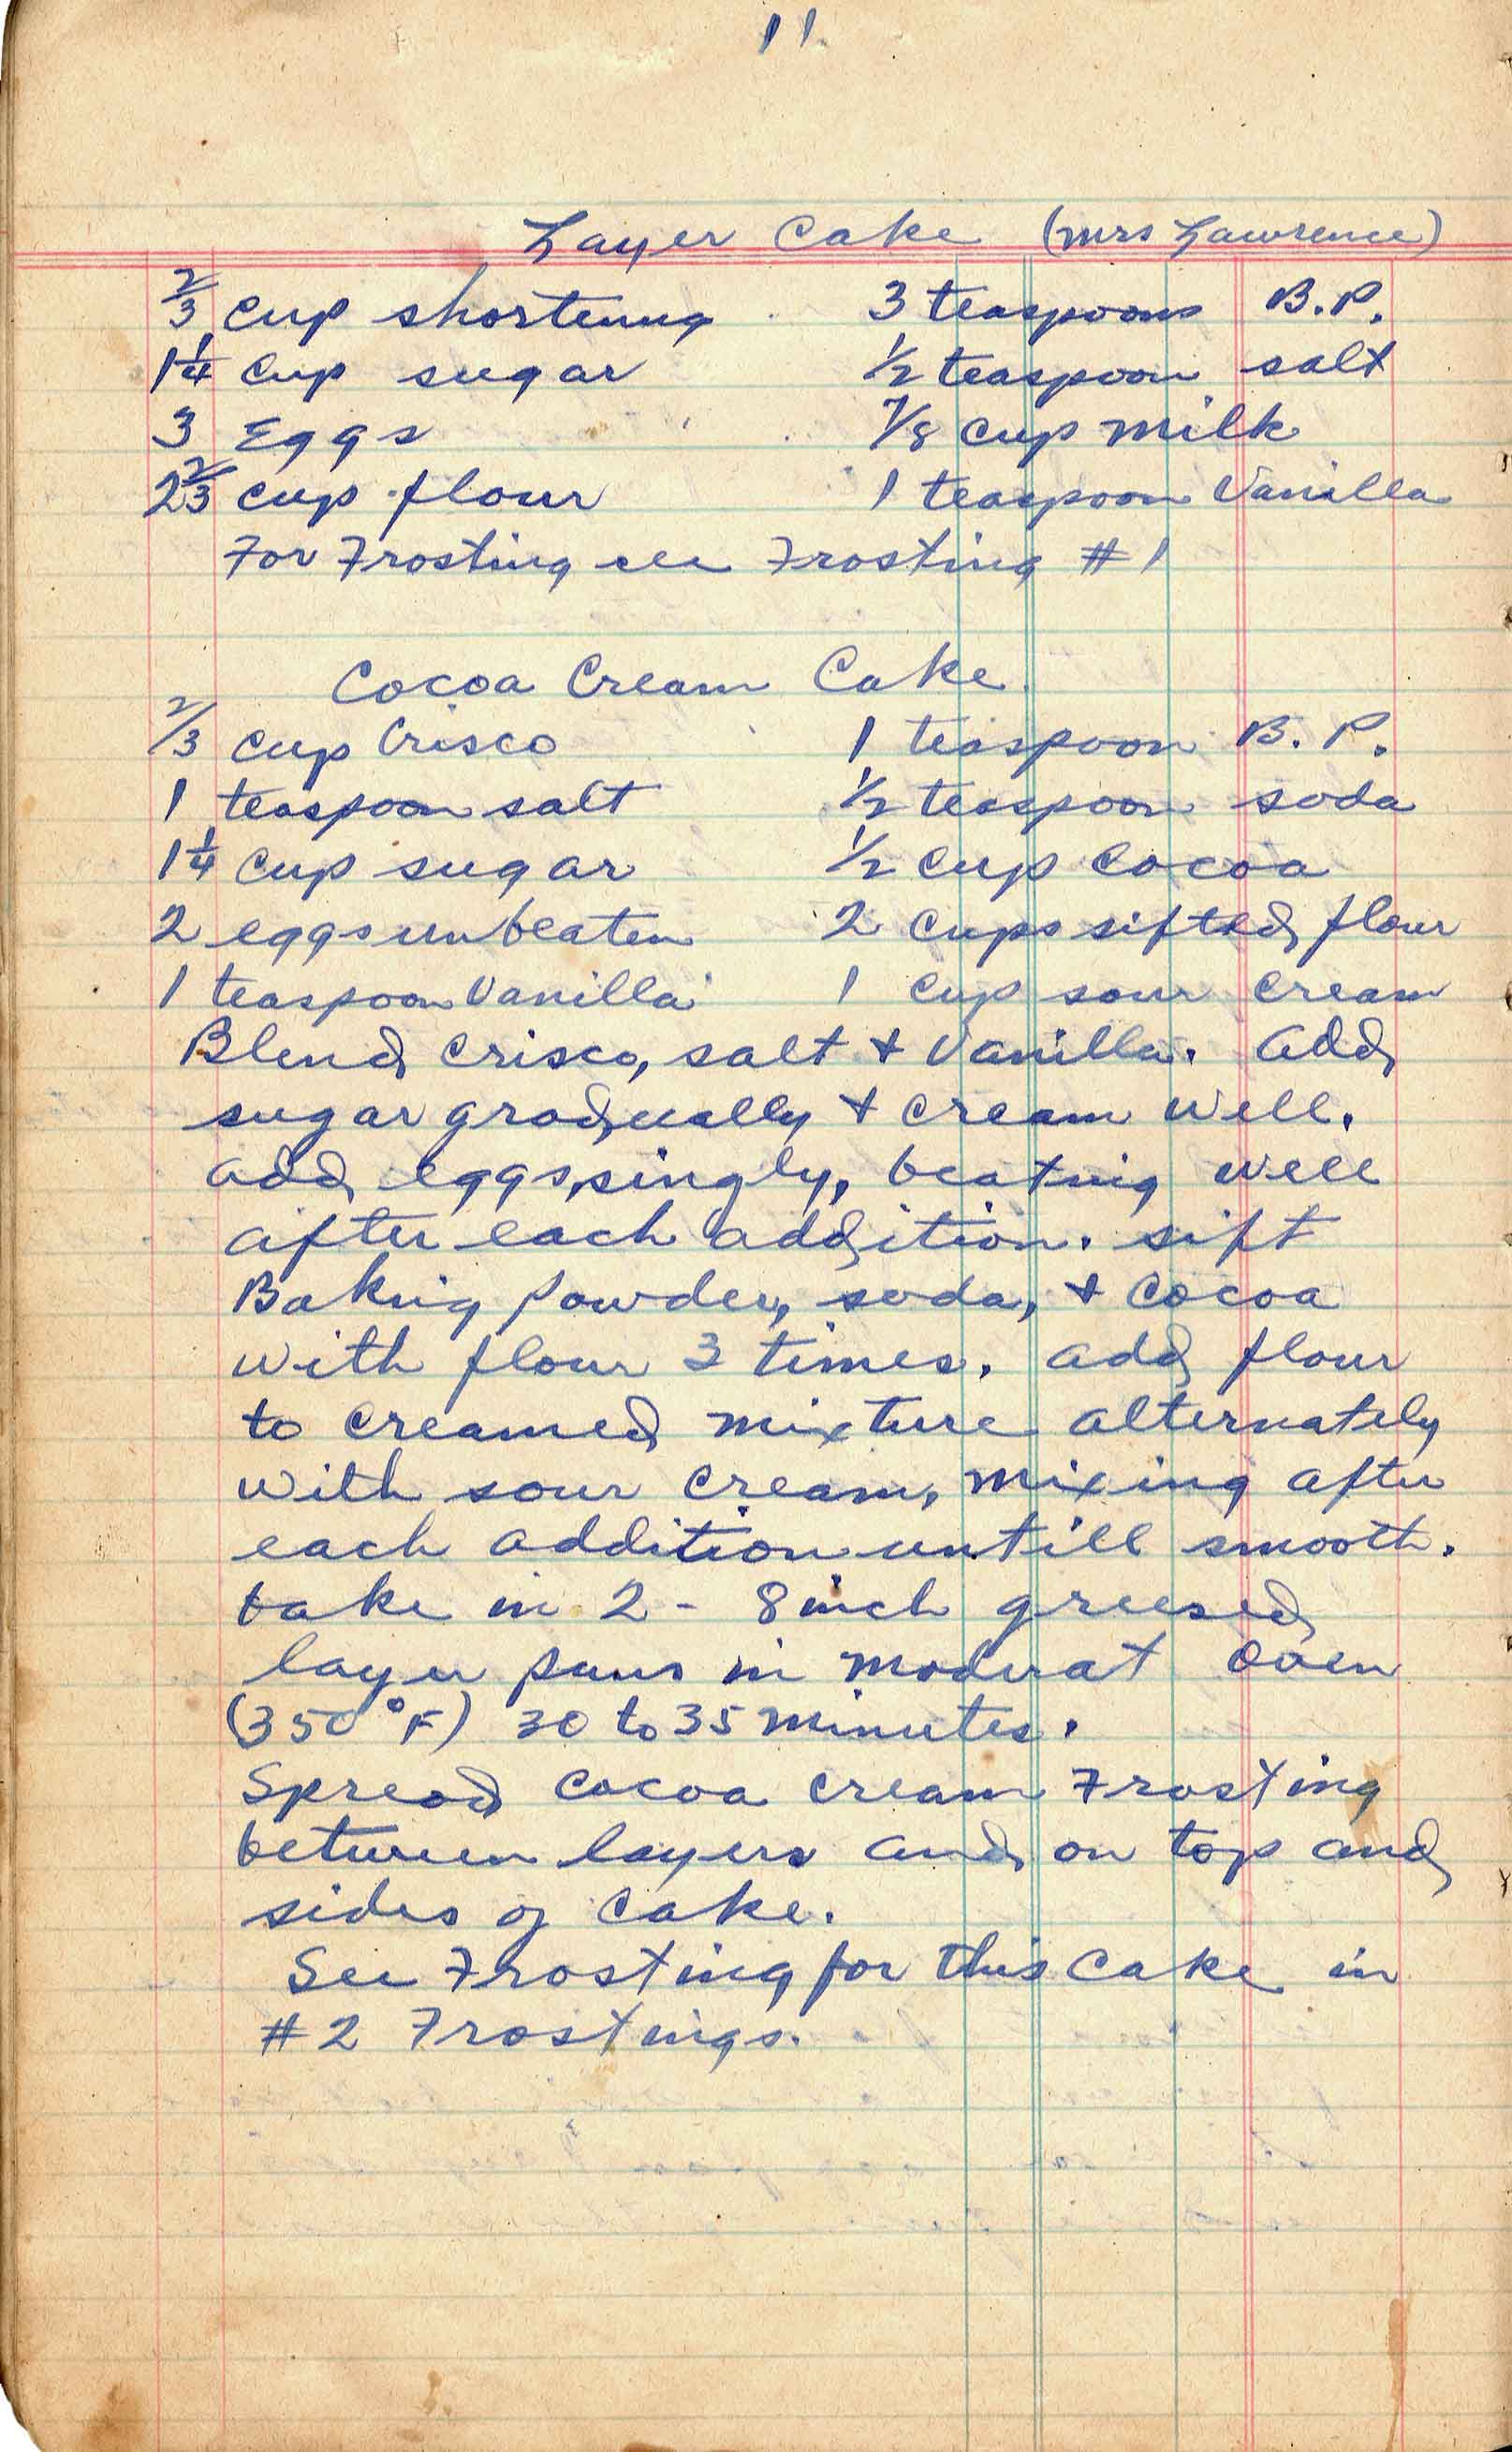 11
Layer Cake (Mrs Lawrence)
2/3 cup shortening 3 teaspoons B.P.
1 1/4 cup sugar 1/2 teaspoon salt
3 Eggs 7/8 cup milk
2 2/3 cup flour 1 teaspoon Vanilla
For Frosting see Frosting #1
Cocoa Cream Cake
2/3 cup Crisco 1 teaspoon B.P.
1 teaspoon salt 1/2 teaspoon soda
1 1/4 cup sugar 1/2 cup cocoa
2 eggs unbeaten 2 cups sifted flour
1 teaspoon Vanilla 1 cup sour cream
Blend Crisco, salt + Vanilla. Add
sugar gradually + cream well.
add eggs, singly, beating well
after each addition. sift
Baking Powder, soda, + cocoa
with flour 3 times. add flour
to creamed mixture alternately
with sour cream, mixing after
each addition untill smooth.
bake in 2 - 8 inch greesed
layer pans in moderat oven
(350°F) 30 to 35 minutes.
Spread cocoa cream Frosting
between layers and on top and
sides of cake.
See Frosting for this cake in
#2 Frostings.